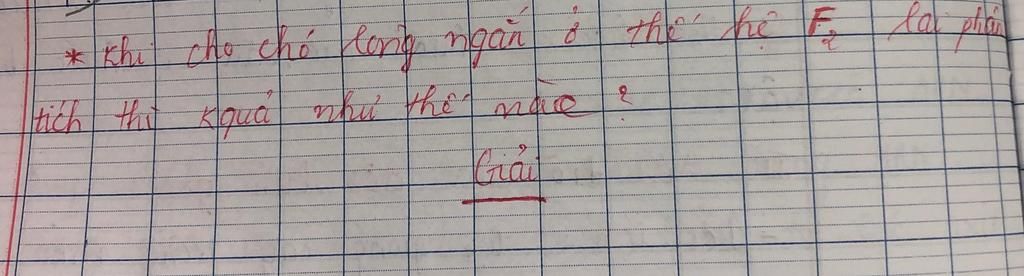 * Khi cho chó lông ngắn ở thế hệ F2 lai phân
tích thì kquả như thế nào ?
Giải